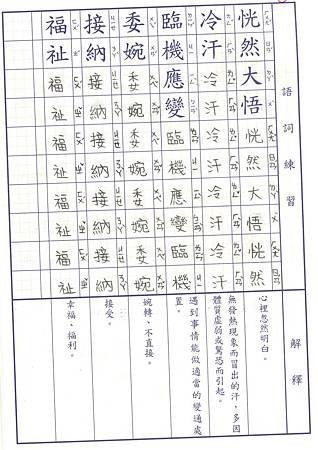 語詞練習
恍然大悟恍然大悟恍然
冷汗冷汗冷汗冷汗冷汗
臨機應變臨機應變臨機
委婉委婉委婉委婉委婉
接納接納接納接納接納
福祉福祉福祉福祉福祉
解釋
心裡忽然明白。
無發熱現象而冒出的汗，多因
體質虛弱或驚恐而引起。
遇到事情能做適當的變通處
置。
婉轉、不直接。
接受。
幸福、福利。